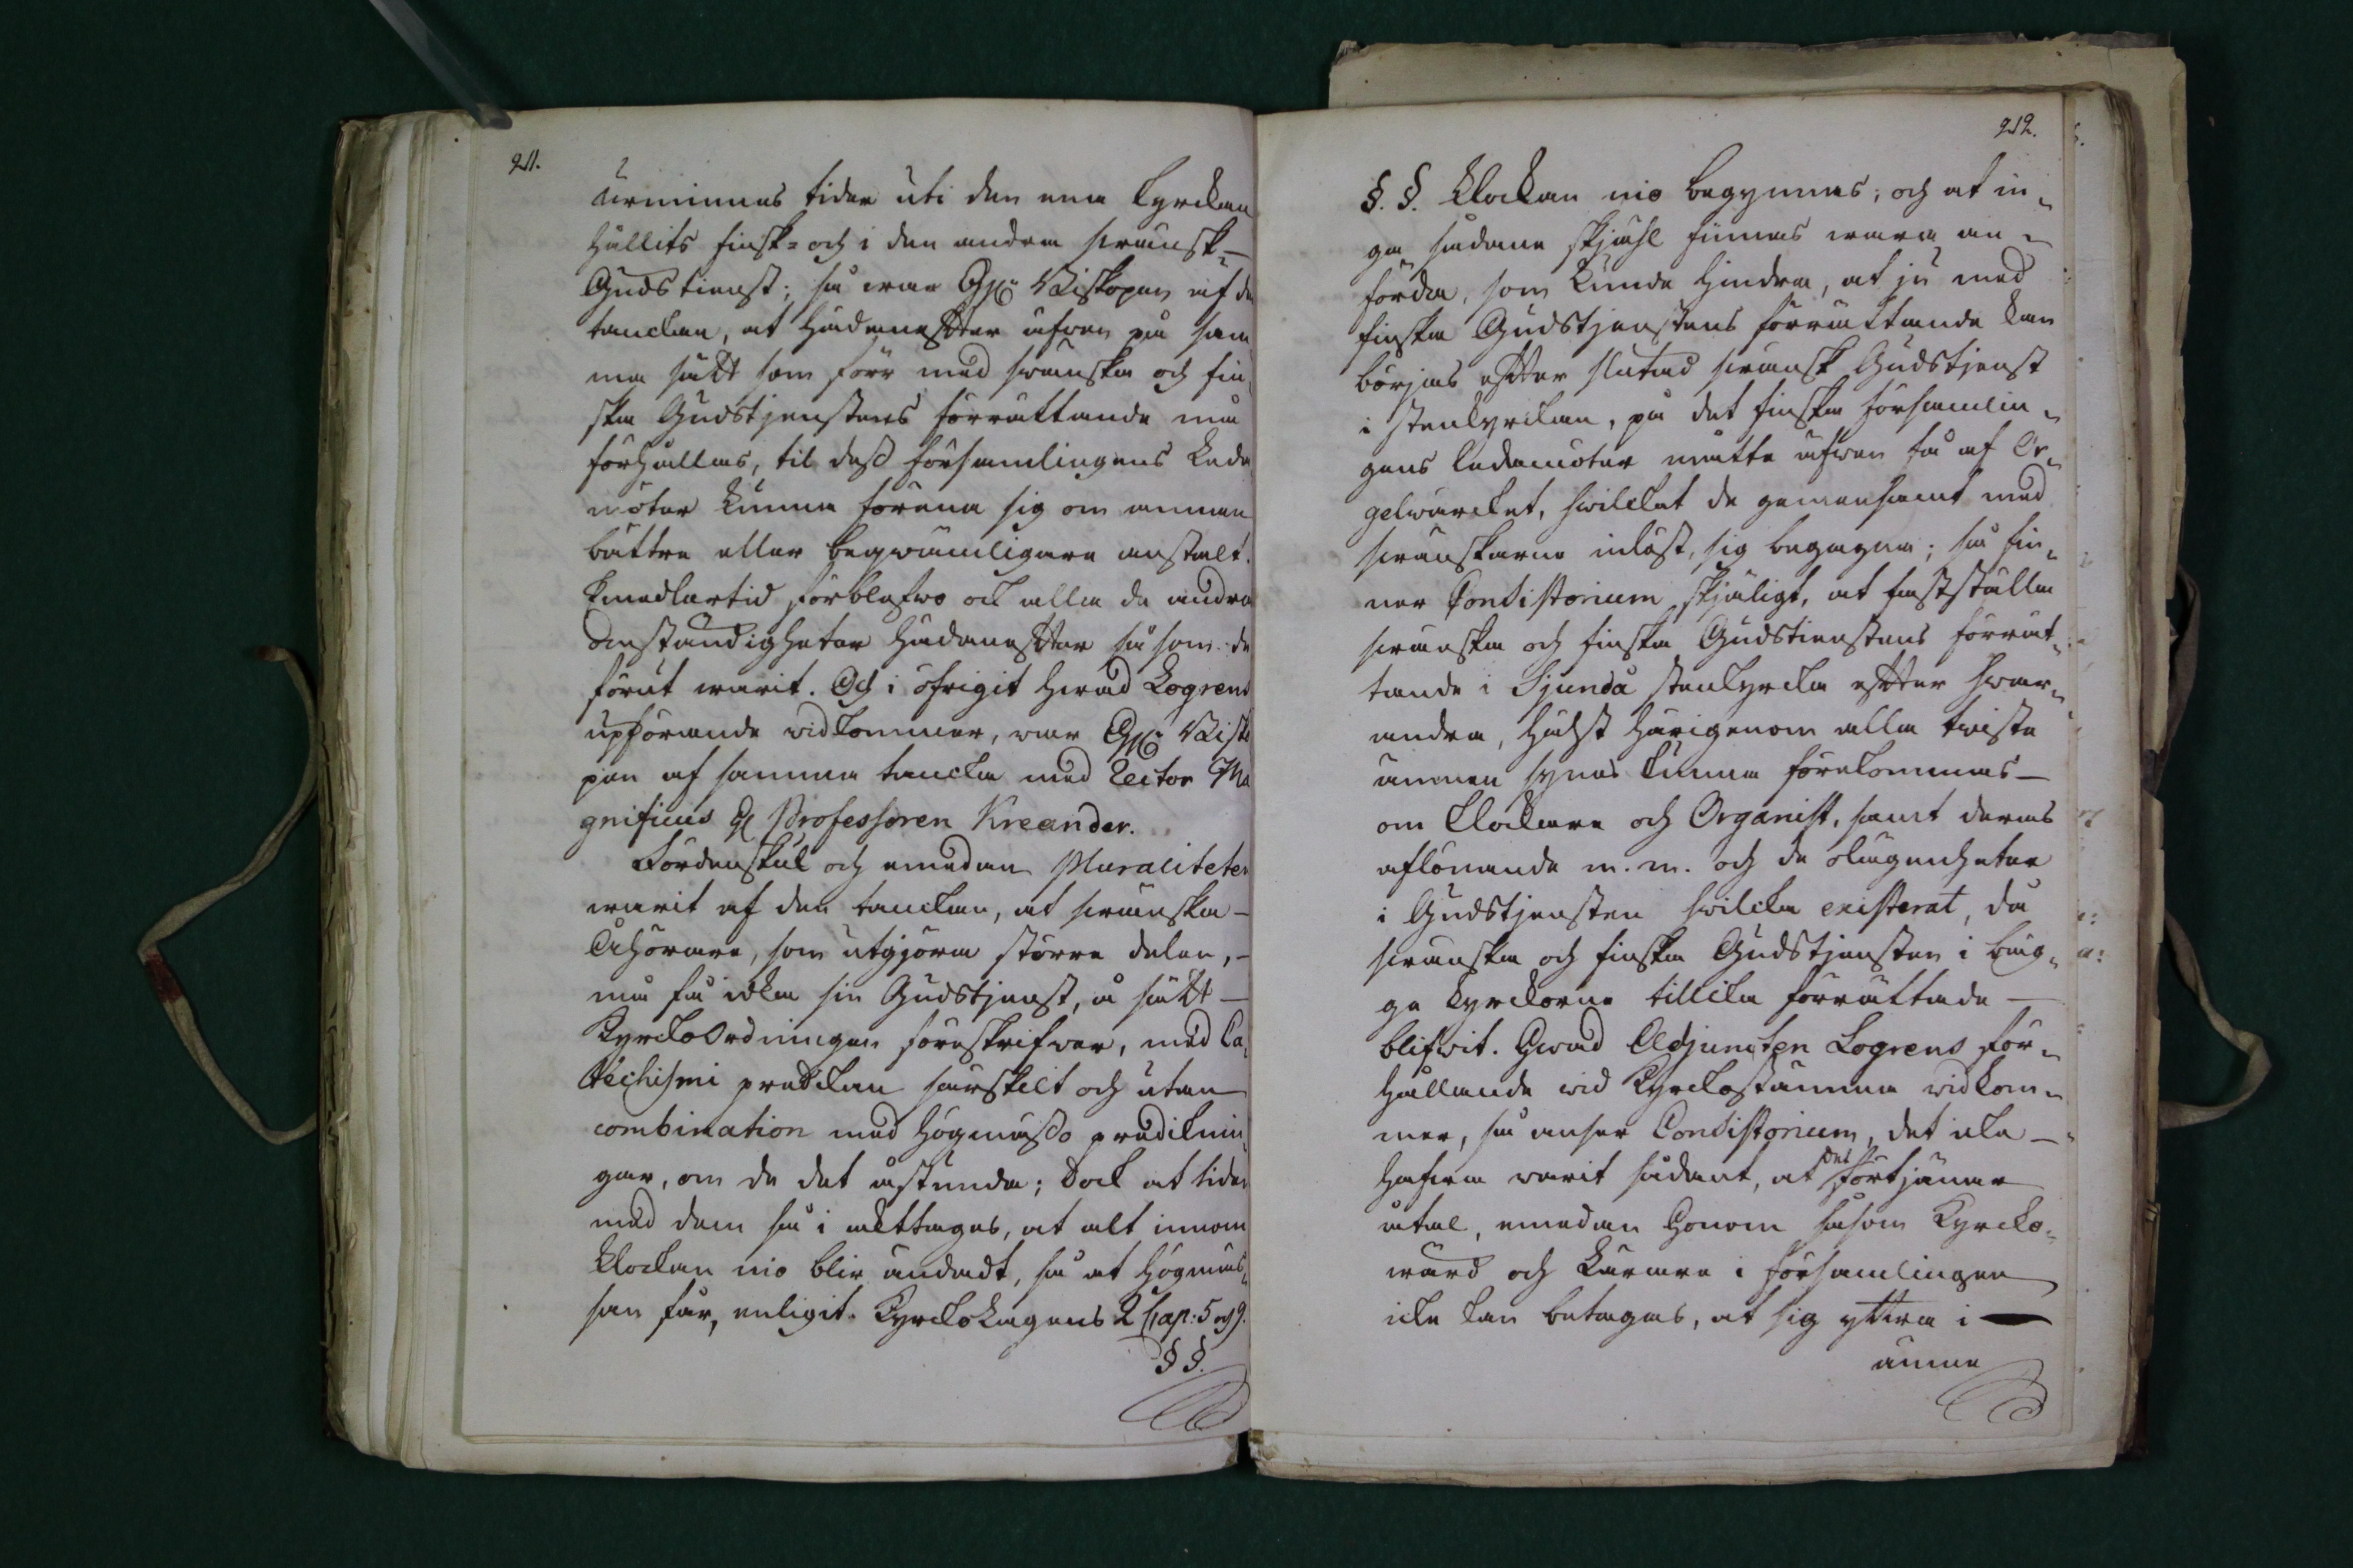 211.
urminnes tider uti den ena kyrckan
hållits finsk- och i den andra swänsk-
Gudstienst; så war Hr Biskopen af de
tanckan, at hädanefter äfwen på sam
ma sätt som förr med swänska och fin¬
ska Gudstjenstens förrättande må
förhållas, til dess församlingens Leda
möter kunna förena sig om annan
bättre eller beqwämligare anstalt.
Emedlertid förblefwo ock alla de andra
omständigheter hädanefter så som de
förut warit. Och i öfrigit hwad Logrens
upförande widkommer, war Hr Bisko
pen af samma tancka med Rector Ma
gnificus H Professoren Kreander.
Fördenskul och emedan Pluraliteten
warit af den tanckan, at swänska-
Åhörare, som utgjöra större delen,-
må få idka sin Gudstjenst, å sätt-
KyrckoOrdningen föreskrifwer, med Ca¬
techismi predikan särskilt och utan
combination med högmässo prediknin¬
gar, om de det åstunda; Dock at tiden
med dem så i akttages, at alt innom
klockan nio blir ändadt, så at högmäs¬
san får, enligit KyrckoLagens 2 Cap: 5 och 9.
§ §.
212.
§. §. klockan nio begynnas; och at in¬
ga sådane skjähl finnas wara an¬
förda, som kunde hindra, at ju med
finska Gudstjenstens förrättande kan
börjas efter slutad swänsk Gudstjenst
i stenkyrckan, på det finska församlin¬
gens ledamöter måtte äfwen få af Or¬
gelwärcket, hwilcket de gemensamt med
swänskarne inlöst, sig begagna; så fin¬
ner Consistorium skjäligt, at fastställa
swänska och finska Gudstienstens förrät¬
tande i Sjundå stenkyrcka efter hwar¬
andra, hälst härigenom alla twiste
ämnen synas kunna förekommas-
om Klockare och Organist, samt deras
aflönande m. m. och de olägenheter
i Gudstjensten hwilcka existerat, då
swänska och finska Gudstjensten i bäg¬
ge kyrckorne tillika förrättade-
blifwit. Hwad Adjuncten Logrens för¬
hållande wid Kyrckostämma widkom¬
mer, så anser Consistorium, det icke-
hafwa warit sådant, at det förtjänar
åtal, emedan honom såsom Kyrcko¬
wård och Lärare i församlingen
icke kan betagas, at sig yttra i -
ämne